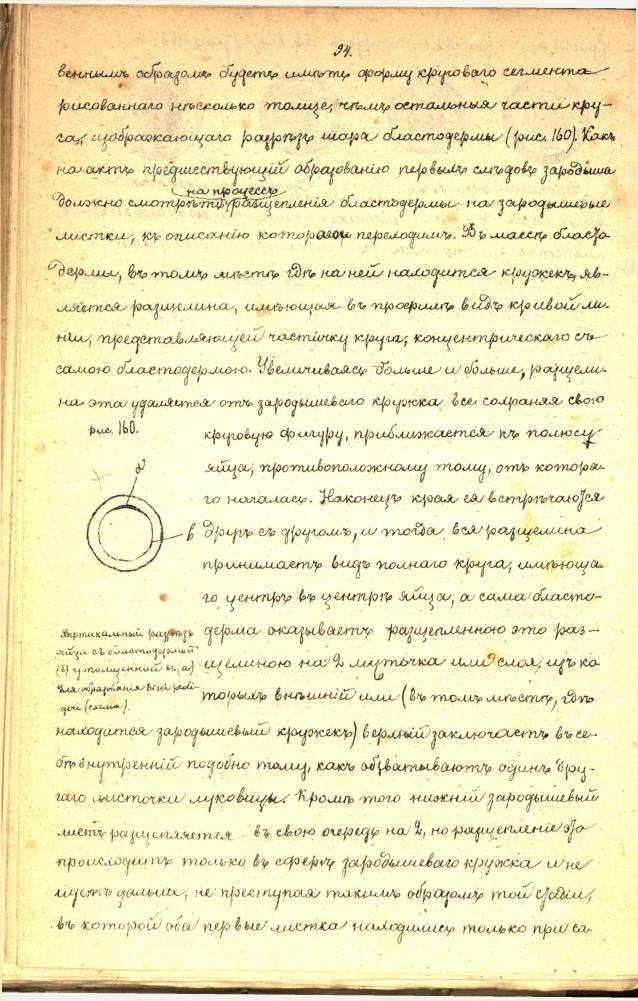 94.
веннымъ образомъ будетъ имѣть форму круговаго сегмента
рисованнаго нѣсколько толще, чѣмъ остальныя части кру-
га, изображающаго разрѣзъ шара бластодермы (рис. 160). Какъ
на актъ предшествующій образованію первыхъ слѣдовъ зародыша
на процессъ
должно смотрѣть разщепленія бластодермы на зародышевые
листки, къ описанію котораго переходимъ. Въ массѣ бласто
дермы, въ томъ мѣстѣ гдѣ на ней находится кружекъ, яв-
ляется разщелина, имѣющая въ профиль видъ кривой ли-
ніи, представляющей частичку круга, концентрическаго съ
самою бластодермою. Увеличиваясь больше и больше, разщели-
на эта удаляется отъ зародышеваго кружка все сохраняя свою
рис. 160.
круговую фигуру, приближается къ полюсу
яйца, противоположному тому, отъ котора-
го началась. Наконецъ края ея встрѣчаются
другъ съ другомъ, и тогда вся разщелина
принимаетъ видъ полнаго круга, имѣюща-
го центръ въ центрѣ яйца, а сама бласто-
дерма оказываетъ разщепленною это раз-
щелиною на 2 листочка или слоя, изъ ко
торыхъ внѣшній или (въ томъ мѣстѣ, гдѣ
а
в
Вертикальный разрѣзъ
яйца съ бластодермой
(в) утолщенной въ (а)
для образованія
(схема).
находится зародышевый кружекъ) верхній заключаетъ въ се-
бѣ внутренній подобно тому, какъ обхватываютъ одинъ дру-
гаго листочки луковицы. Кромѣ того нижній зародышевый
листъ разщепляется въ свою очередь на 2, но разщепленіе это
происходитъ только въ сферѣ зародышеваго кружка и не
идетъ дальше, не преступая такимъ образомъ той стадіи,
въ которой оба первые листка находились только при са